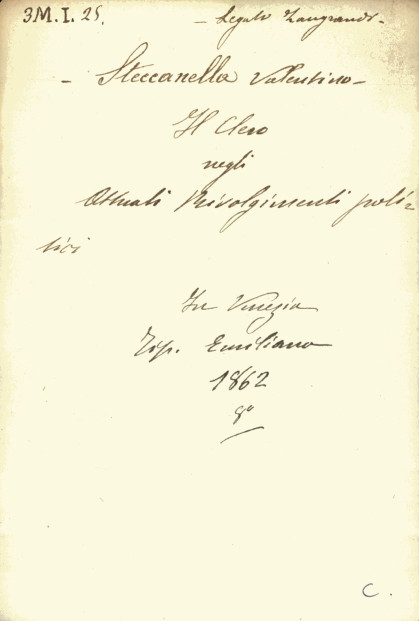 3M.I.25.
- Legato Zangrandi -
- Steccanella Valentino -
Il Clero
negli
Attuali Rivolgimenti poli=
tici
In Venezia
Tip. Emiliana
1862
8°
C.